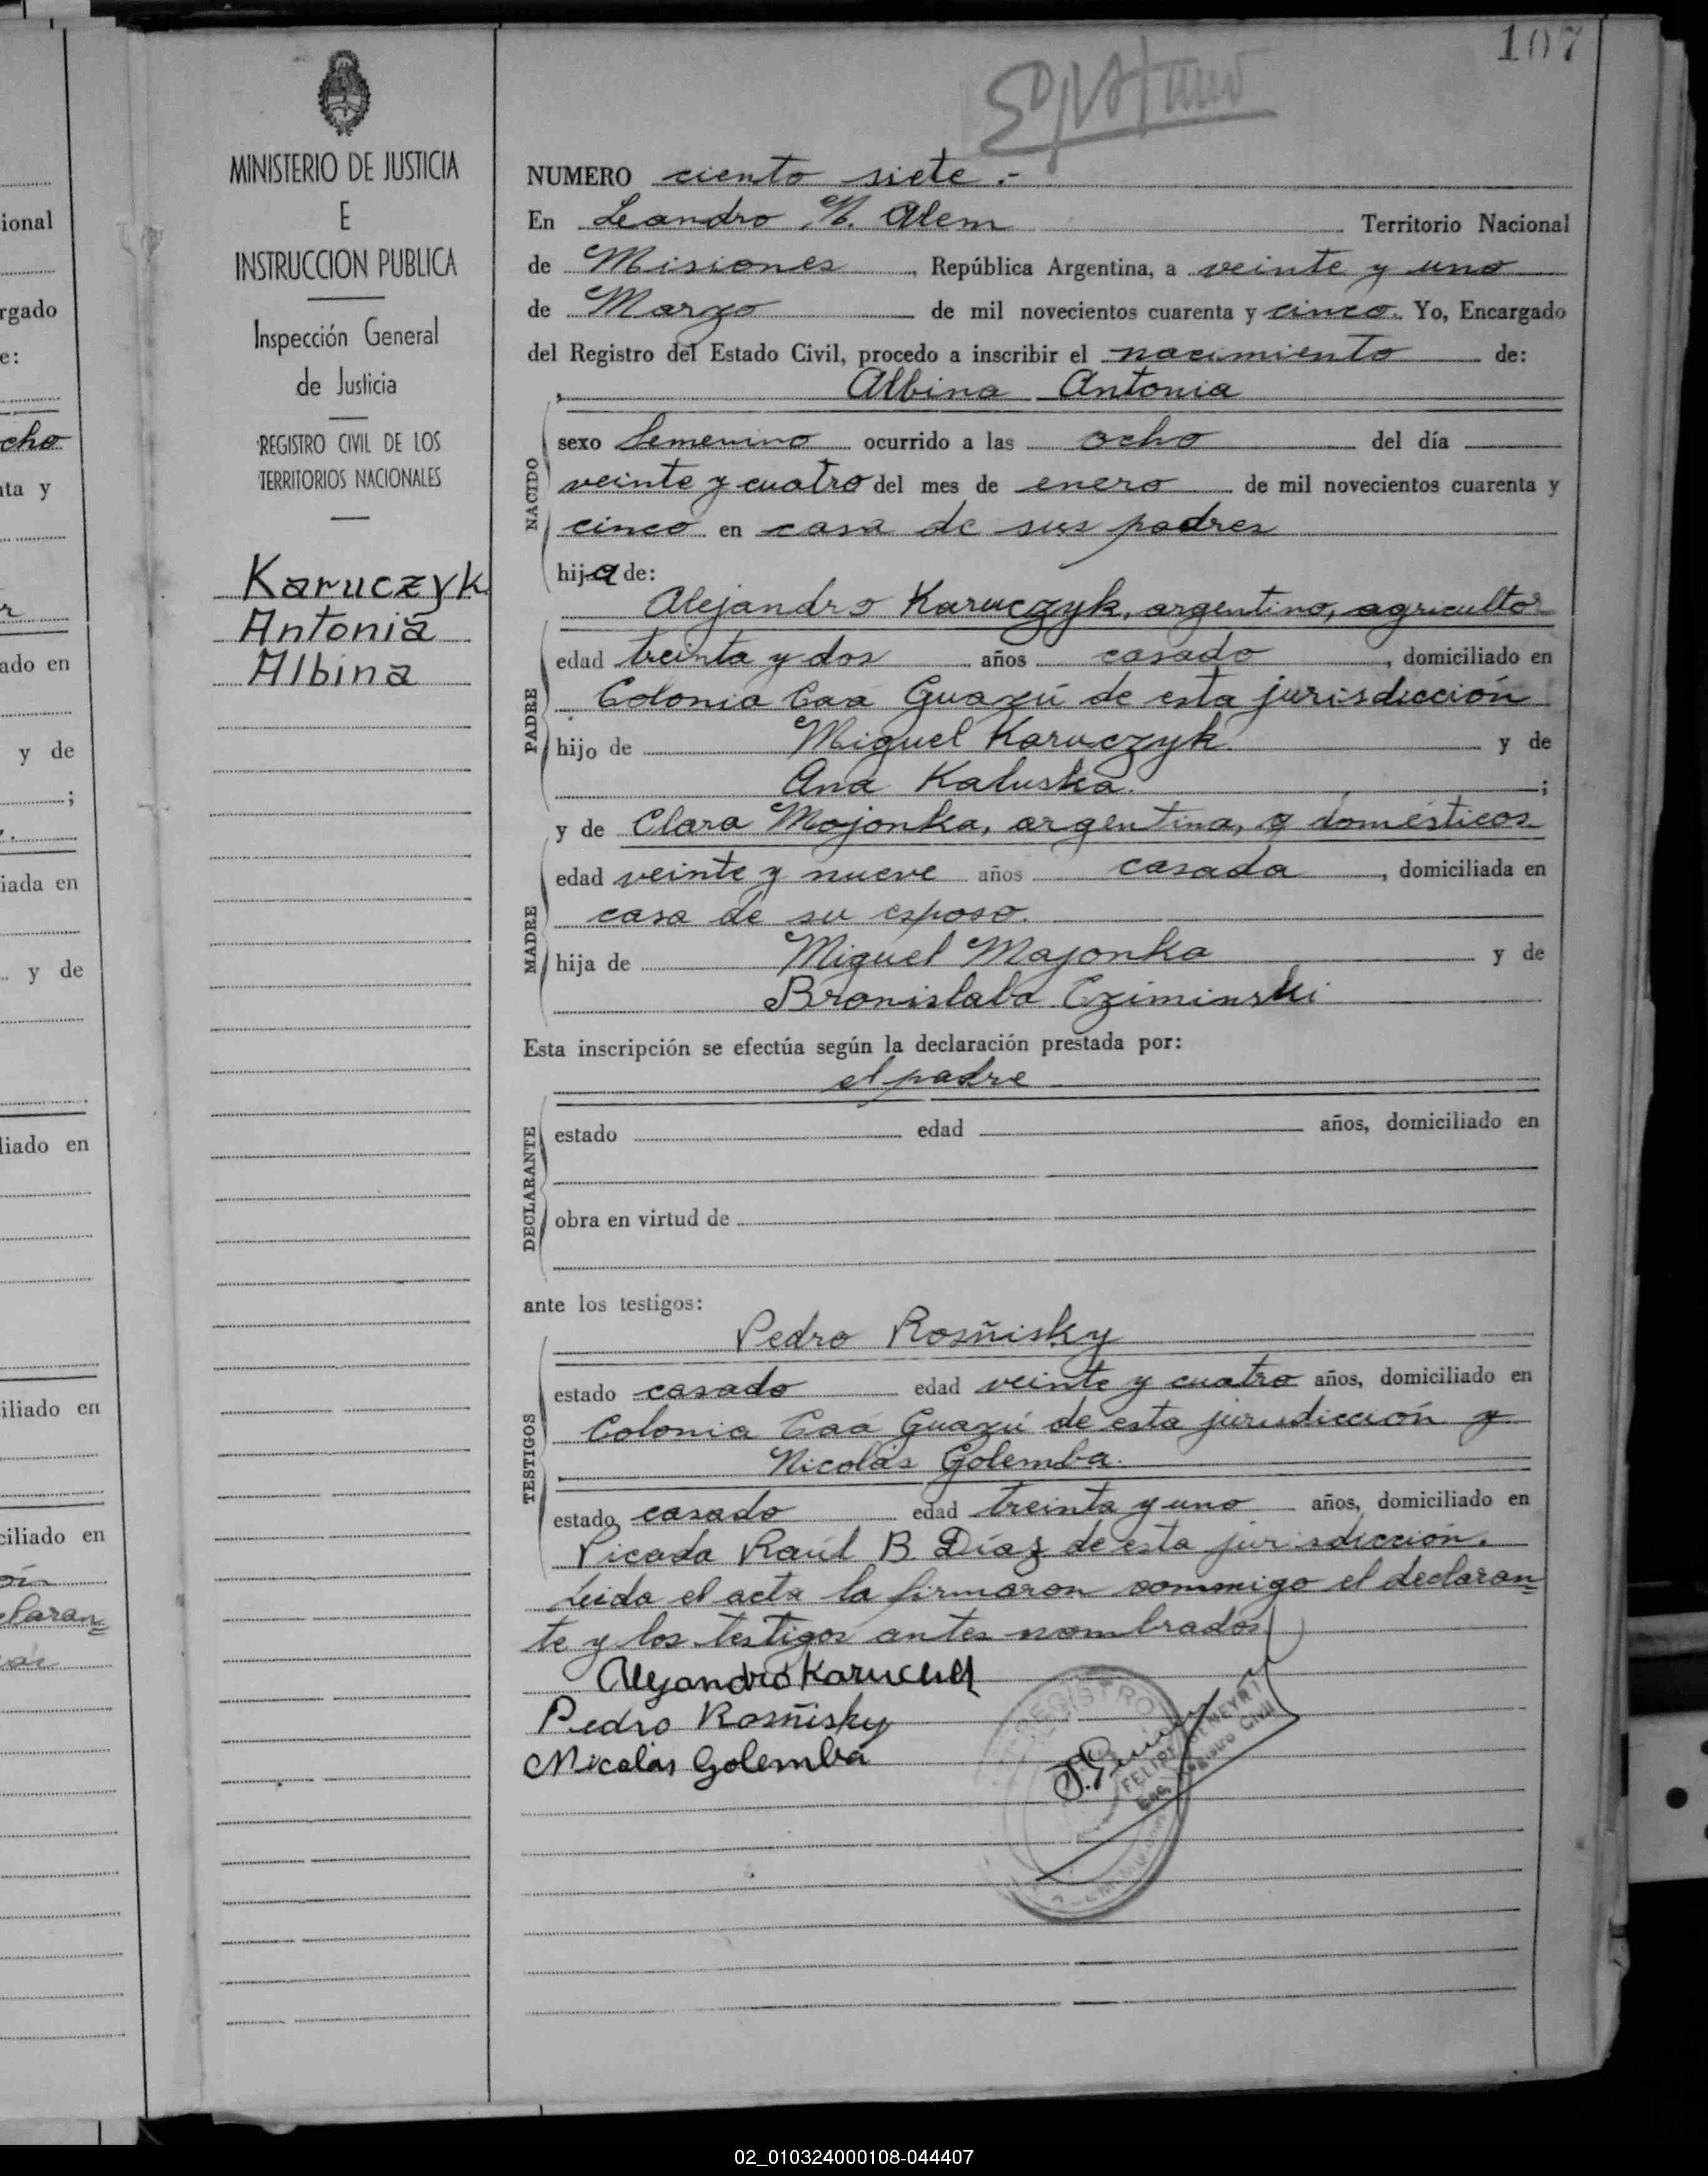 107
MINISTERIO DE JUSTICIA
E
INSTRUCCION PUBLICA
Inspección General
de Justicia
REGISTRO CIVIL DE LOS
TERRITORIOS NACIONALES
Karuczyk
Antonia
Albina
NUMERO ciento siete.-
En Leandro N. Alem Territorio Nacional
de Misiones, República Argentina, a veinte y uno
de Marzo de mil novecientos cuarenta y cinco. Yo, Encargado
del Registro del Estado Civil, procedo a inscribir el nacimiento de:
Albina Antonia
NACIDO
sexo femenino ocurrido a las ocho del día
veinte y cuatro del mes de enero de mil novecientos cuarenta y
cinco en casa de sus padres
hija de:
Alejandro Karuczyk, argentino, agricultor
PADRE
edad treinta y dos años casado, domiciliado en
Colonia Caa Guazú de esta jurisdicción
hijo de Miguel Karuczyk y de
Ana Kaluska.;
y de Clara Mojonka, argentina, q domésticos
MADRE
edad veinte y nueve años casada, domiciliada en
casa de su esposo.
hija de Miguel Majonka y de
Bronislaba Cziminski
Esta inscripción se efectúa según la declaración prestada por:
el padre
DECLARANTE
estado edad años, domiciliado en
obra en virtud de
ante los testigos:
Pedro Rosñisky
TESTIGOS
estado casado edad veinte y cuatro años, domiciliado en
Colonia Caá Guazú de esta jurisdicción y
Nicolás Golemba.
estado casado edad treinta y uno años, domiciliado en
Picada Raúl B. Díaz de esta jurisdicción.
Leida el acta la firmaron conmigo el declaran=
te y los testigos antes nombrados
Alejandro
Pedro Rosñisky
Nicolás Golemba
REGISTRO
FELIPE
Enc. Registro Civil
ional
rgado
e:
cho
nta y
ado en
y de
;
iada en
y de
liado en
iliado en
ciliado en
claran=
02_010324000108-044407